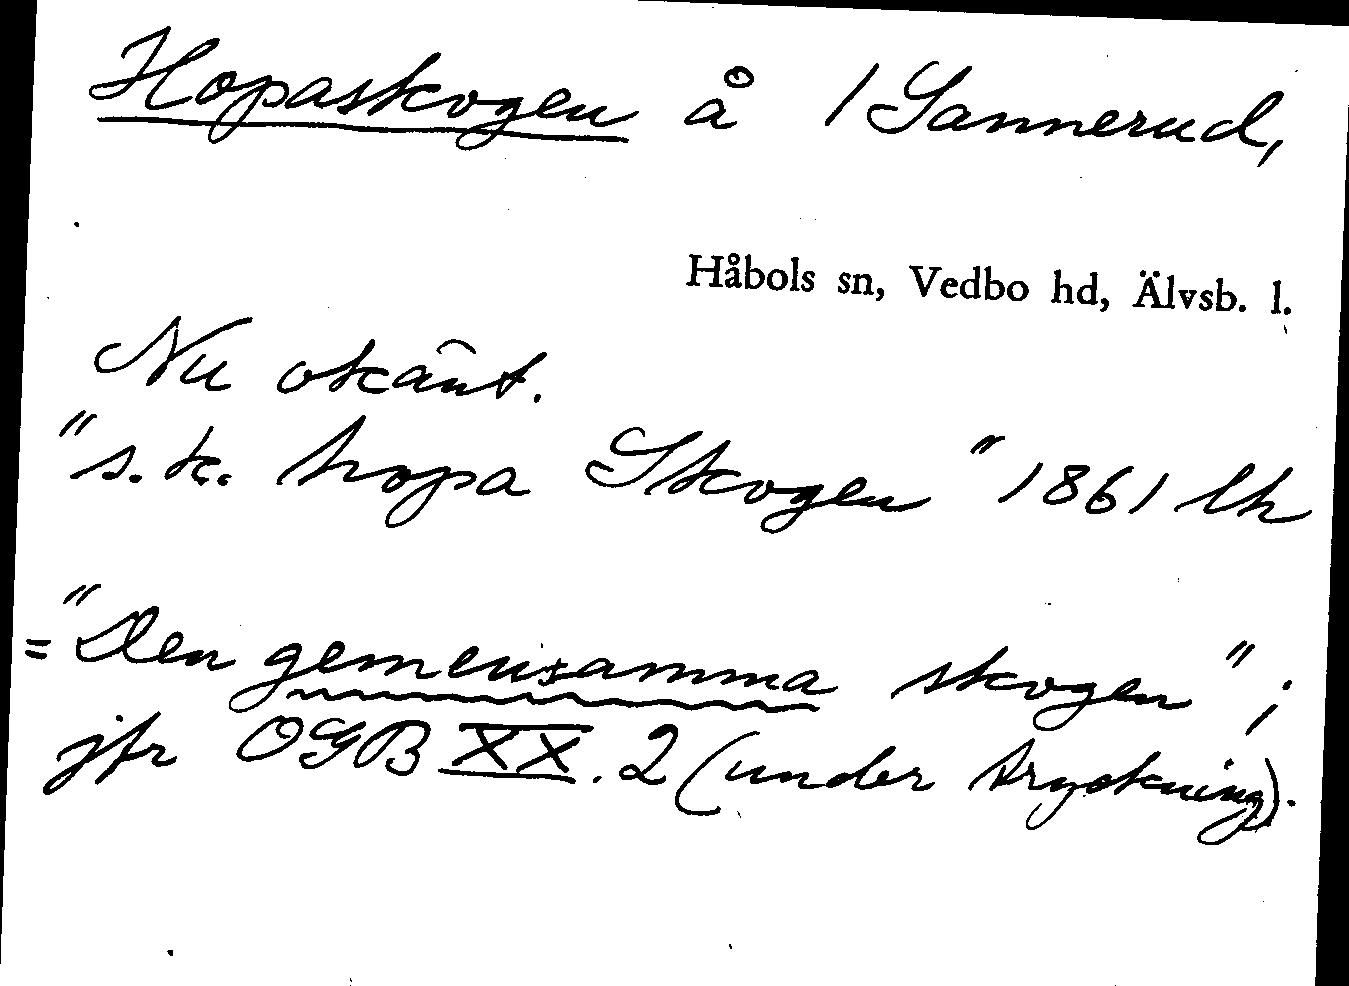 Hopaskogen å 1 Sannerud,
Håbols sn, Vedbo hd, Älvsb. l.
Nu okänt.
"s.k. hopa Skogen" 1861 lh
="Den gemensamma skogen";
jfr OGB XX.2 (under tryckning).